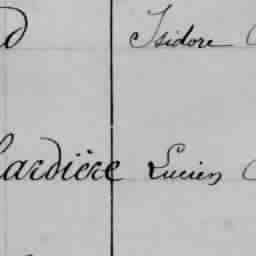 d Isidore
lardière Lucien